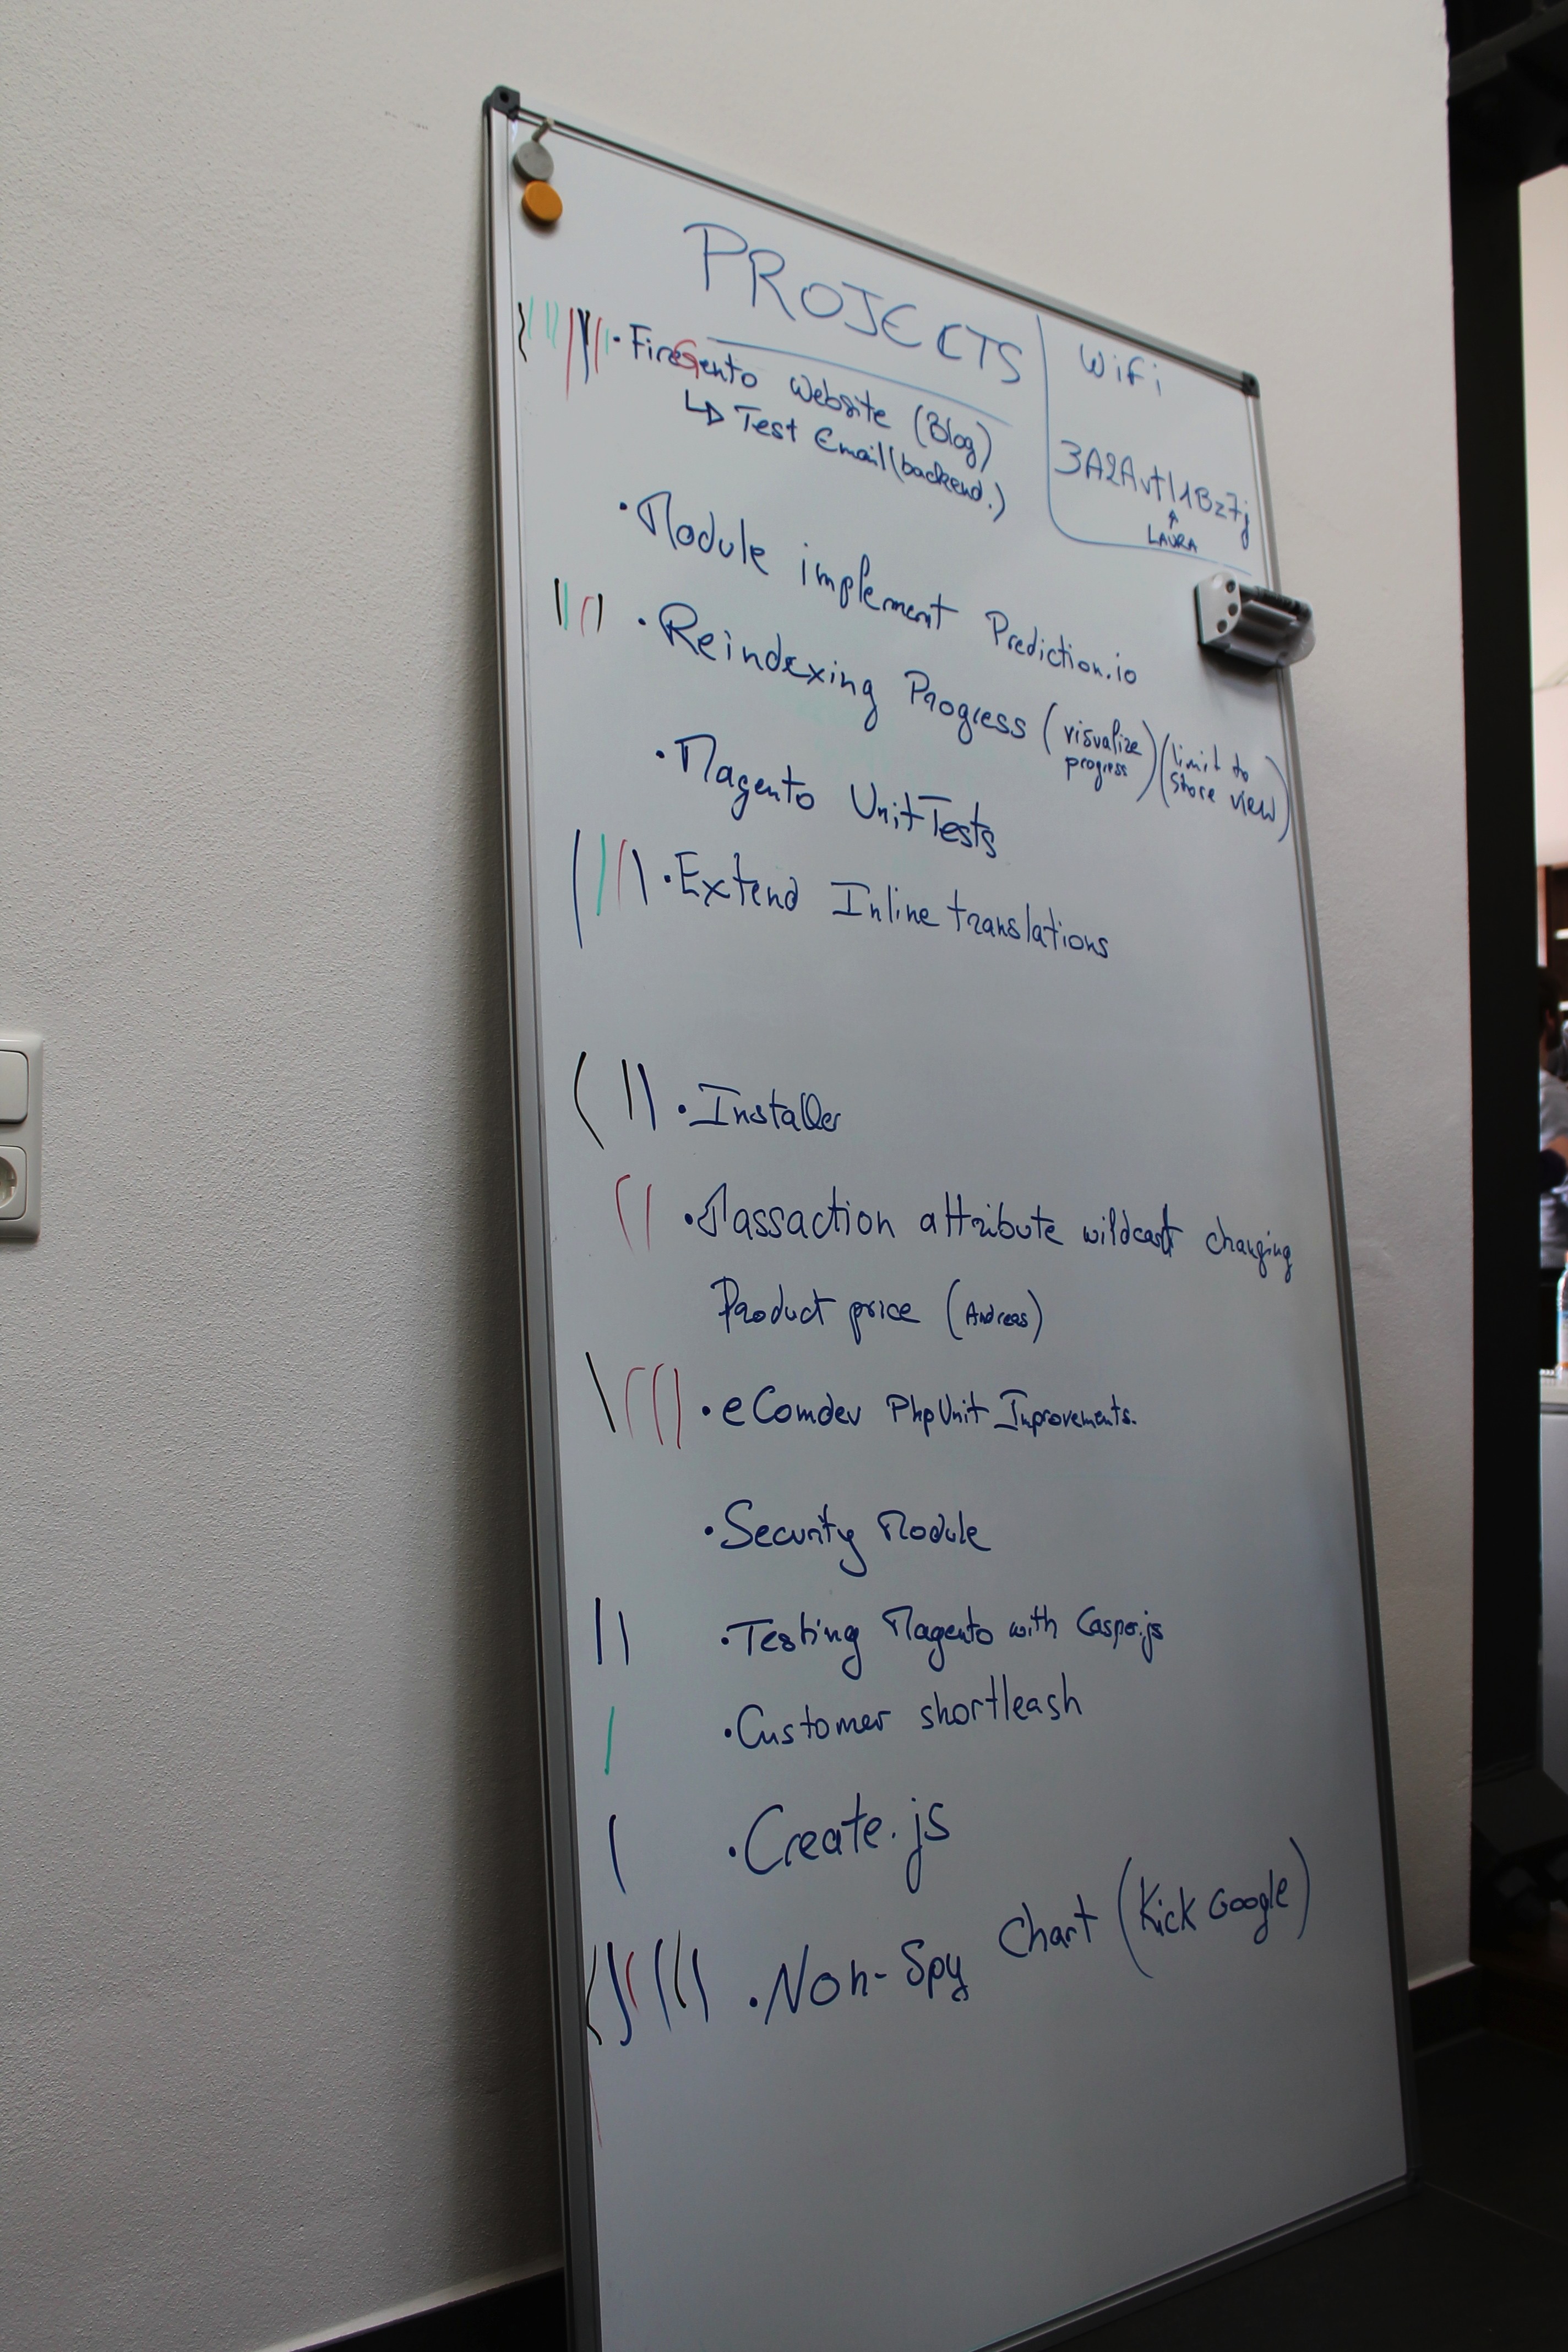 PROJECTS
• FireGento Website (Blog)
↳ Test Email (backend.)
WiFi
3A2Avtl1Bz7j
↑
LAURA
• Module implement Prediction.io
• Reindexing Progress (visualize progress) (limit to store view)
• Magento UnitTests
• Extend Inline translations
• Installer
• Massaction attribute wildcard changing
Product price (Andreas)
• eComdev PhpUnit Inprovements.
• Security Module
• Testing Magento with Casper.js
• Customer shortleash
• Create.js
• Non-Spy Chart (Kick Google)